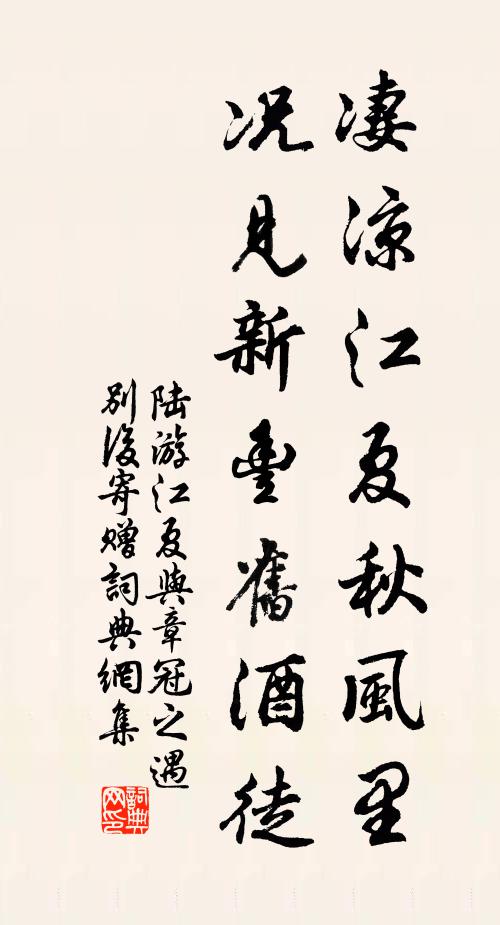 凄涼江夏秋風里
况見新豐舊酒徒
陆游江夏與章冠之遇
别後寄赠詞典網集
詞典网印